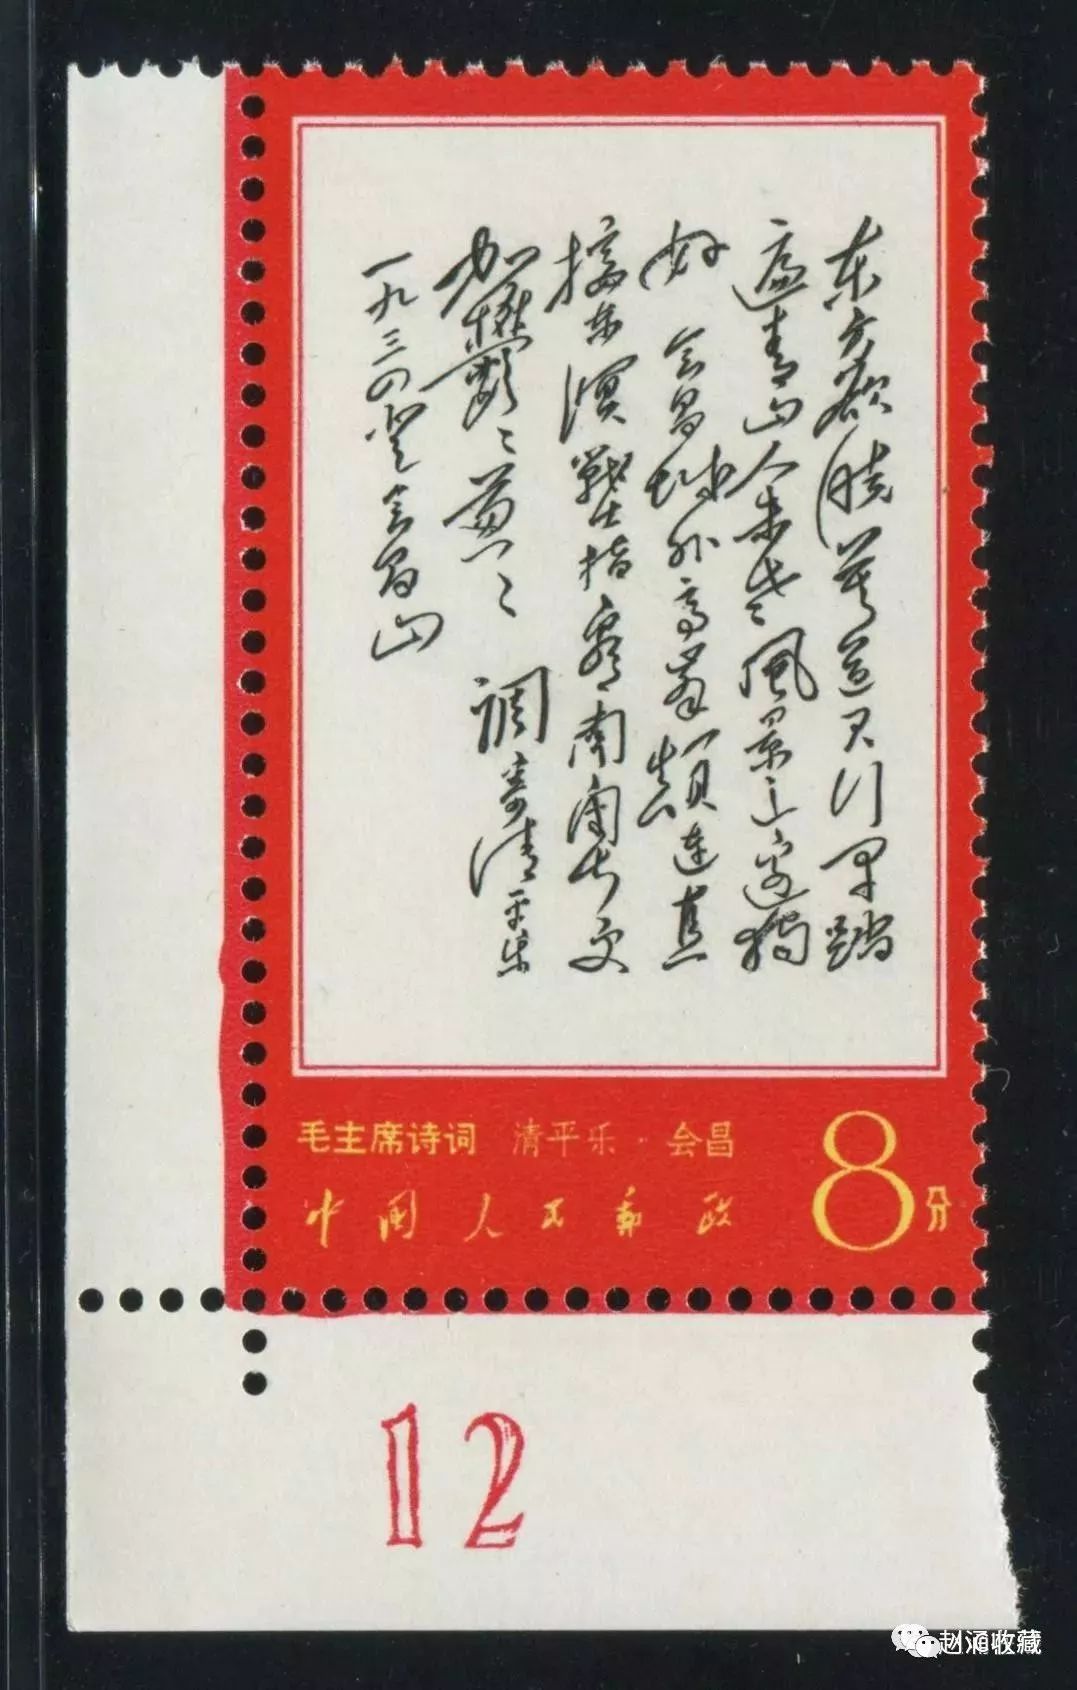 东方欲晓莫道君行早踏
遍青山人未老風景这边独
好 会昌城外高峯颠连直
接东溟戰士指看南粤长更
加鬱々葱々 调寄清平乐
一九三四登会昌山
毛主席诗词 清平乐·会昌
中国人民邮政
8分
12
赵涌收藏